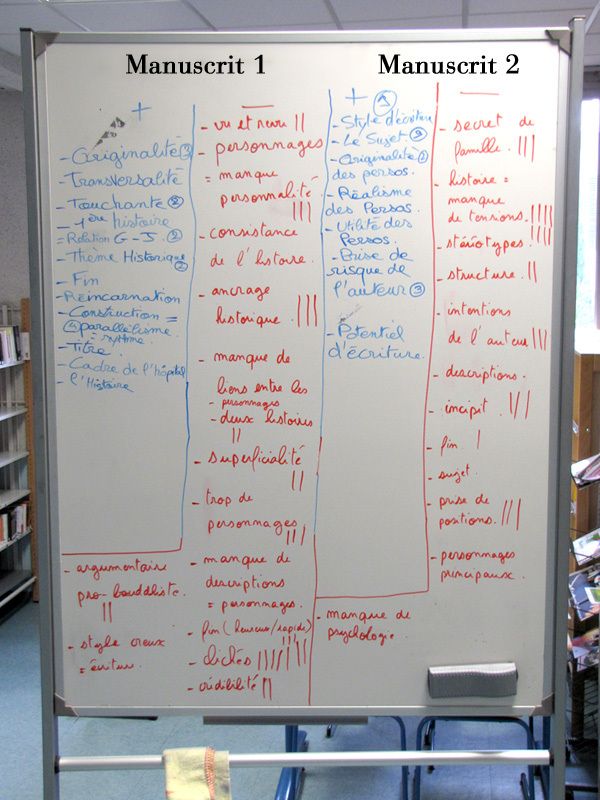 Manuscrit 1
+
- Originalité ③
- Transversalité
- Touchante ②
- 1ère histoire
= Relation G-J. ②
- Thème Historique ②
- Fin
- Réincarnation
- Construction =
parallélisme.
= rythme.
- Titre.
- Cadre de l'hôpital
- l'Histoire
—
- vu et revu ||
- personnages
= manque
personnalité
|||
- consistance
de l'histoire.
- ancrage
historique. |||
- manque de
liens entre les
- personnages
- deux histoires
||
- superficialité
||
- trop de
personnages
|||
- manque de
descriptions
= personnages.
- fin (heureuse/rapide)
- clichés
- crédibilité ||
- argumentaire
pro-bouddhiste.
||
- style creux
= écriture.
Manuscrit 2
+
- Style d'écriture
- Le Sujet. ③
- Originalité ①
des persos.
- Réalisme
des Persos.
- Utilité des
Persos.
- Prise de
risque de
l'auteur ③
- Potentiel
d'écriture.
—
- secret de
famille. |||
- histoire =
manque
de tensions. ||||
||||
- stéréotypes.
- structure. ||
- intentions
de l'auteur |||
- descriptions.
- incipit. |||
- fin. |
- sujet.
- prise de
positions. |||
- personnages
principaux.
- manque de
psychologie.